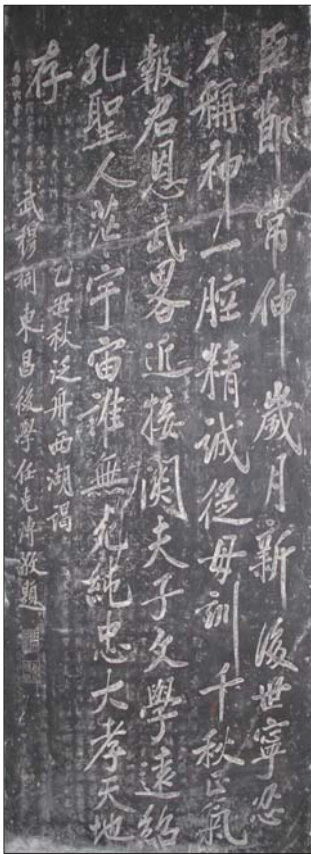 臣節常伸歲月新後世寧忍
不稱神一腔精誠從母訓千秋正氣
報君恩武畧近接関夫子文學遠紹
孔聖人茫々宇宙誰無死純忠大孝天地
存
乙丑秋泛舟西湖謁
武穆祠東昌後學任克溥敬題